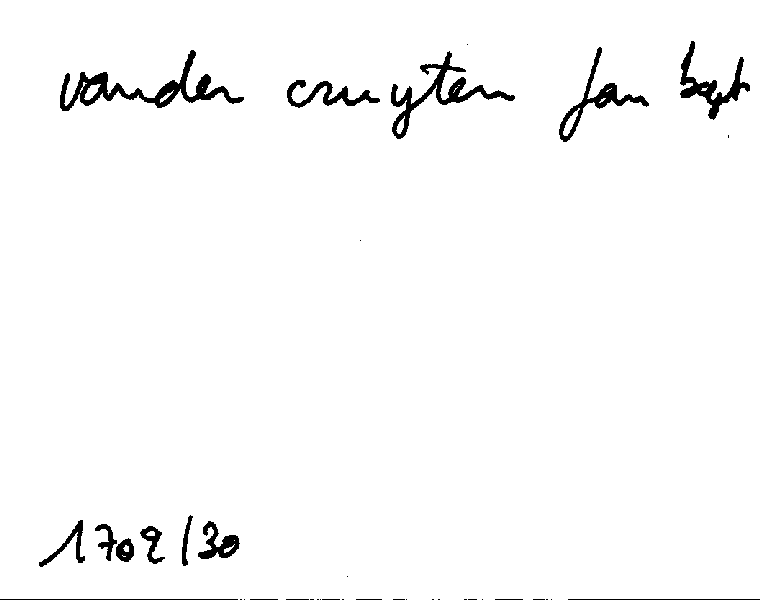 vander cruyten Jan bapt
1702/30